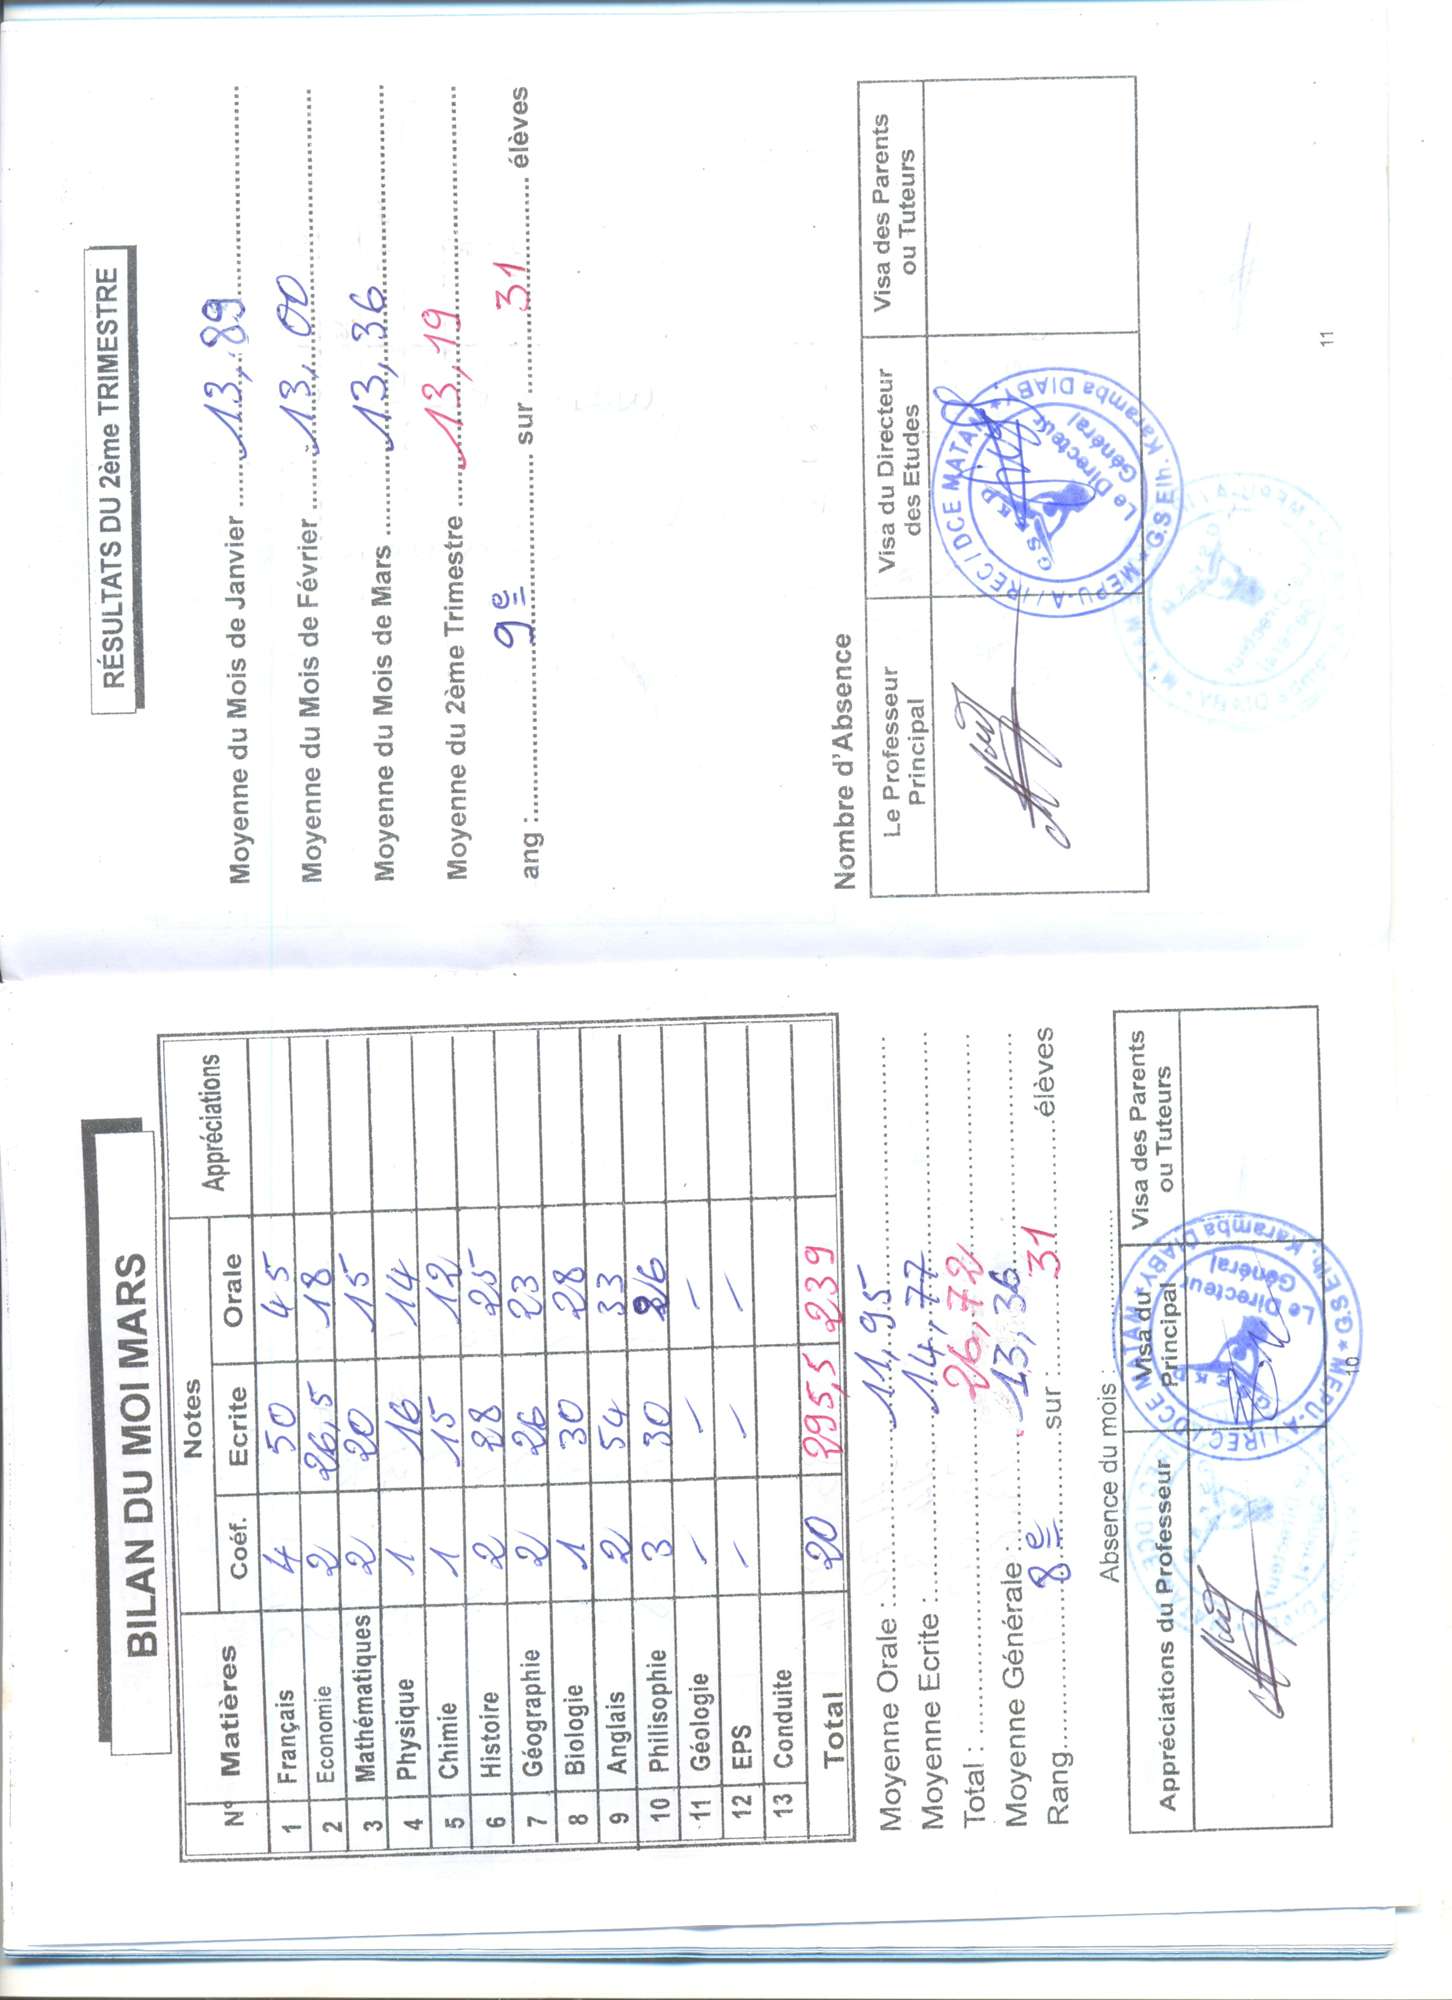 BILAN DU MOI MARS
N° Matières Notes Appréciations
Coéf. Ecrite Orale
1 Français 4 50 45
2 Economie 2 26,5 18
3 Mathématiques 2 20 15
4 Physique 1 16 14
5 Chimie 1 15 12
6 Histoire 2 28 25
7 Géographie 2 26 23
8 Biologie 1 30 28
9 Anglais 2 54 33
10 Philisophie 3 30 26
11 Géologie - - -
12 EPS - - -
13 Conduite
Total 20 295,5 239
Moyenne Orale : 11,95
Moyenne Ecrite : 14,77
Total : 26,72
Moyenne Générale : 13,36
Rang 8e sur : 31 élèves
Absence du mois :
Appréciations du Professeur Visa du Principal Visa des Parents ou Tuteurs
MEPU-A / IREC / DCE MATAM ★ G.S Elh. Karamba DIABY ★
Le Directeur Général
10
RÉSULTATS DU 2ème TRIMESTRE
Moyenne du Mois de Janvier 13,89
Moyenne du Mois de Février 13,00
Moyenne du Mois de Mars 13,36
Moyenne du 2ème Trimestre 13,19
ang : 9e sur 31 élèves
Nombre d'Absence
Le Professeur Principal Visa du Directeur des Etudes Visa des Parents ou Tuteurs
MEPU-A / IREC / DCE MATAM ★ G.S Elh. Karamba DIABY ★
G.S.E.K.D
Le Directeur Général
11